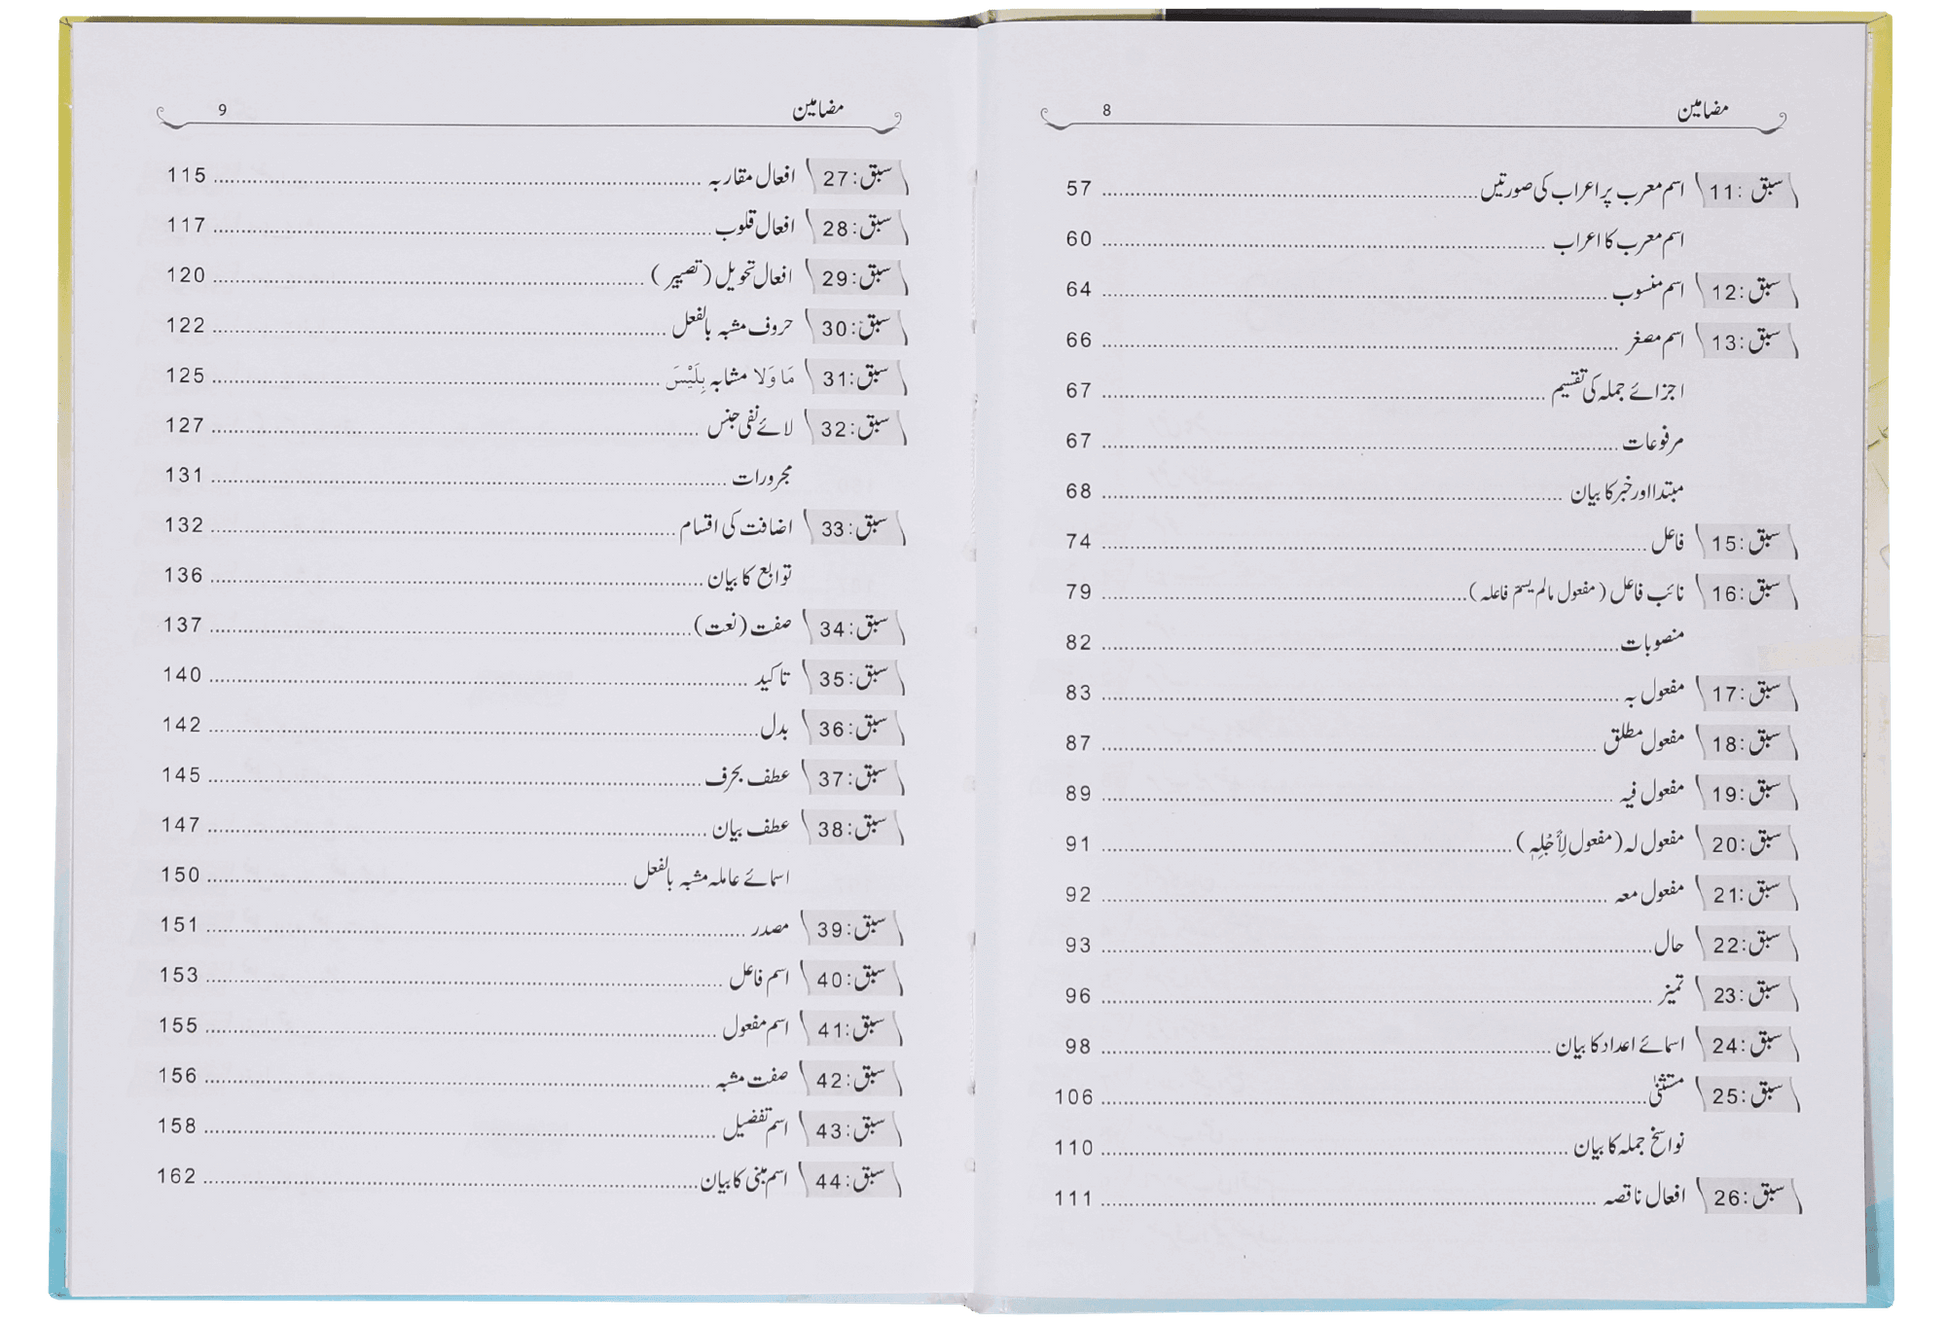 مضامین 8
سبق :11 اسم معرب پر اعراب کی صورتیں 57
اسم معرب کا اعراب 60
سبق :12 اسم منسوب 64
سبق :13 اسم مصغر 66
اجزائے جملہ کی تقسیم 67
مرفوعات 67
مبتدا اور خبر کا بیان 68
سبق :15 فاعل 74
سبق :16 نائب فاعل (مفعول مالم یسمّ فاعلہ) 79
منصوبات 82
سبق :17 مفعول بہ 83
سبق :18 مفعول مطلق 87
سبق :19 مفعول فیہ 89
سبق :20 مفعول لہ (مفعول لِأَجْلِہٖ) 91
سبق :21 مفعول معہ 92
سبق :22 حال 93
سبق :23 تمیز 96
سبق :24 اسمائے اعداد کا بیان 98
سبق :25 مستثنیٰ 106
نواسخ جملہ کا بیان 110
سبق :26 افعال ناقصہ 111
مضامین 9
سبق :27 افعال مقاربہ 115
سبق :28 افعال قلوب 117
سبق :29 افعال تحویل (تصییر) 120
سبق :30 حروف مشبہ بالفعل 122
سبق :31 مَا وَلَا مشابہ بِلَيْسَ 125
سبق :32 لائے نفی جنس 127
مجرورات 131
سبق :33 اضافت کی اقسام 132
توابع کا بیان 136
سبق :34 صفت (نعت) 137
سبق :35 تاکید 140
سبق :36 بدل 142
سبق :37 عطف بحرف 145
سبق :38 عطف بیان 147
اسمائے عاملہ مشبہ بالفعل 150
سبق :39 مصدر 151
سبق :40 اسم فاعل 153
سبق :41 اسم مفعول 155
سبق :42 صفت مشبہ 156
سبق :43 اسم تفضیل 158
سبق :44 اسم مبنی کا بیان 162